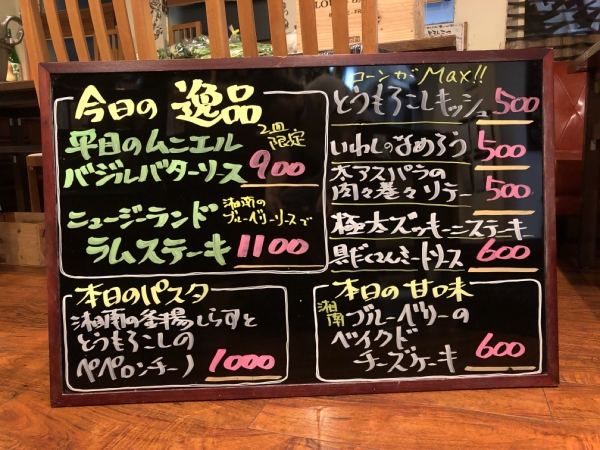 今日の逸品
平目のムニエル
2皿限定
バジルバターソース 900
ニュージーランド
湘南のブルーベリーソースで
ラムステーキ 1100
コーンがMax!!
とうもろこしキッシュ 500
いわしのなめろう 500
太アスパラの
肉々巻々リテー 500
極太ズッキーニステーキ
黒だくさんミートソース 600
本日のパスタ
湘南の釜揚しらすと
とうもろこしの
ペペロンチーノ 1000
本日の甘口味
湘南ブルーベリーの
ベイクド
チーズケーキ 600